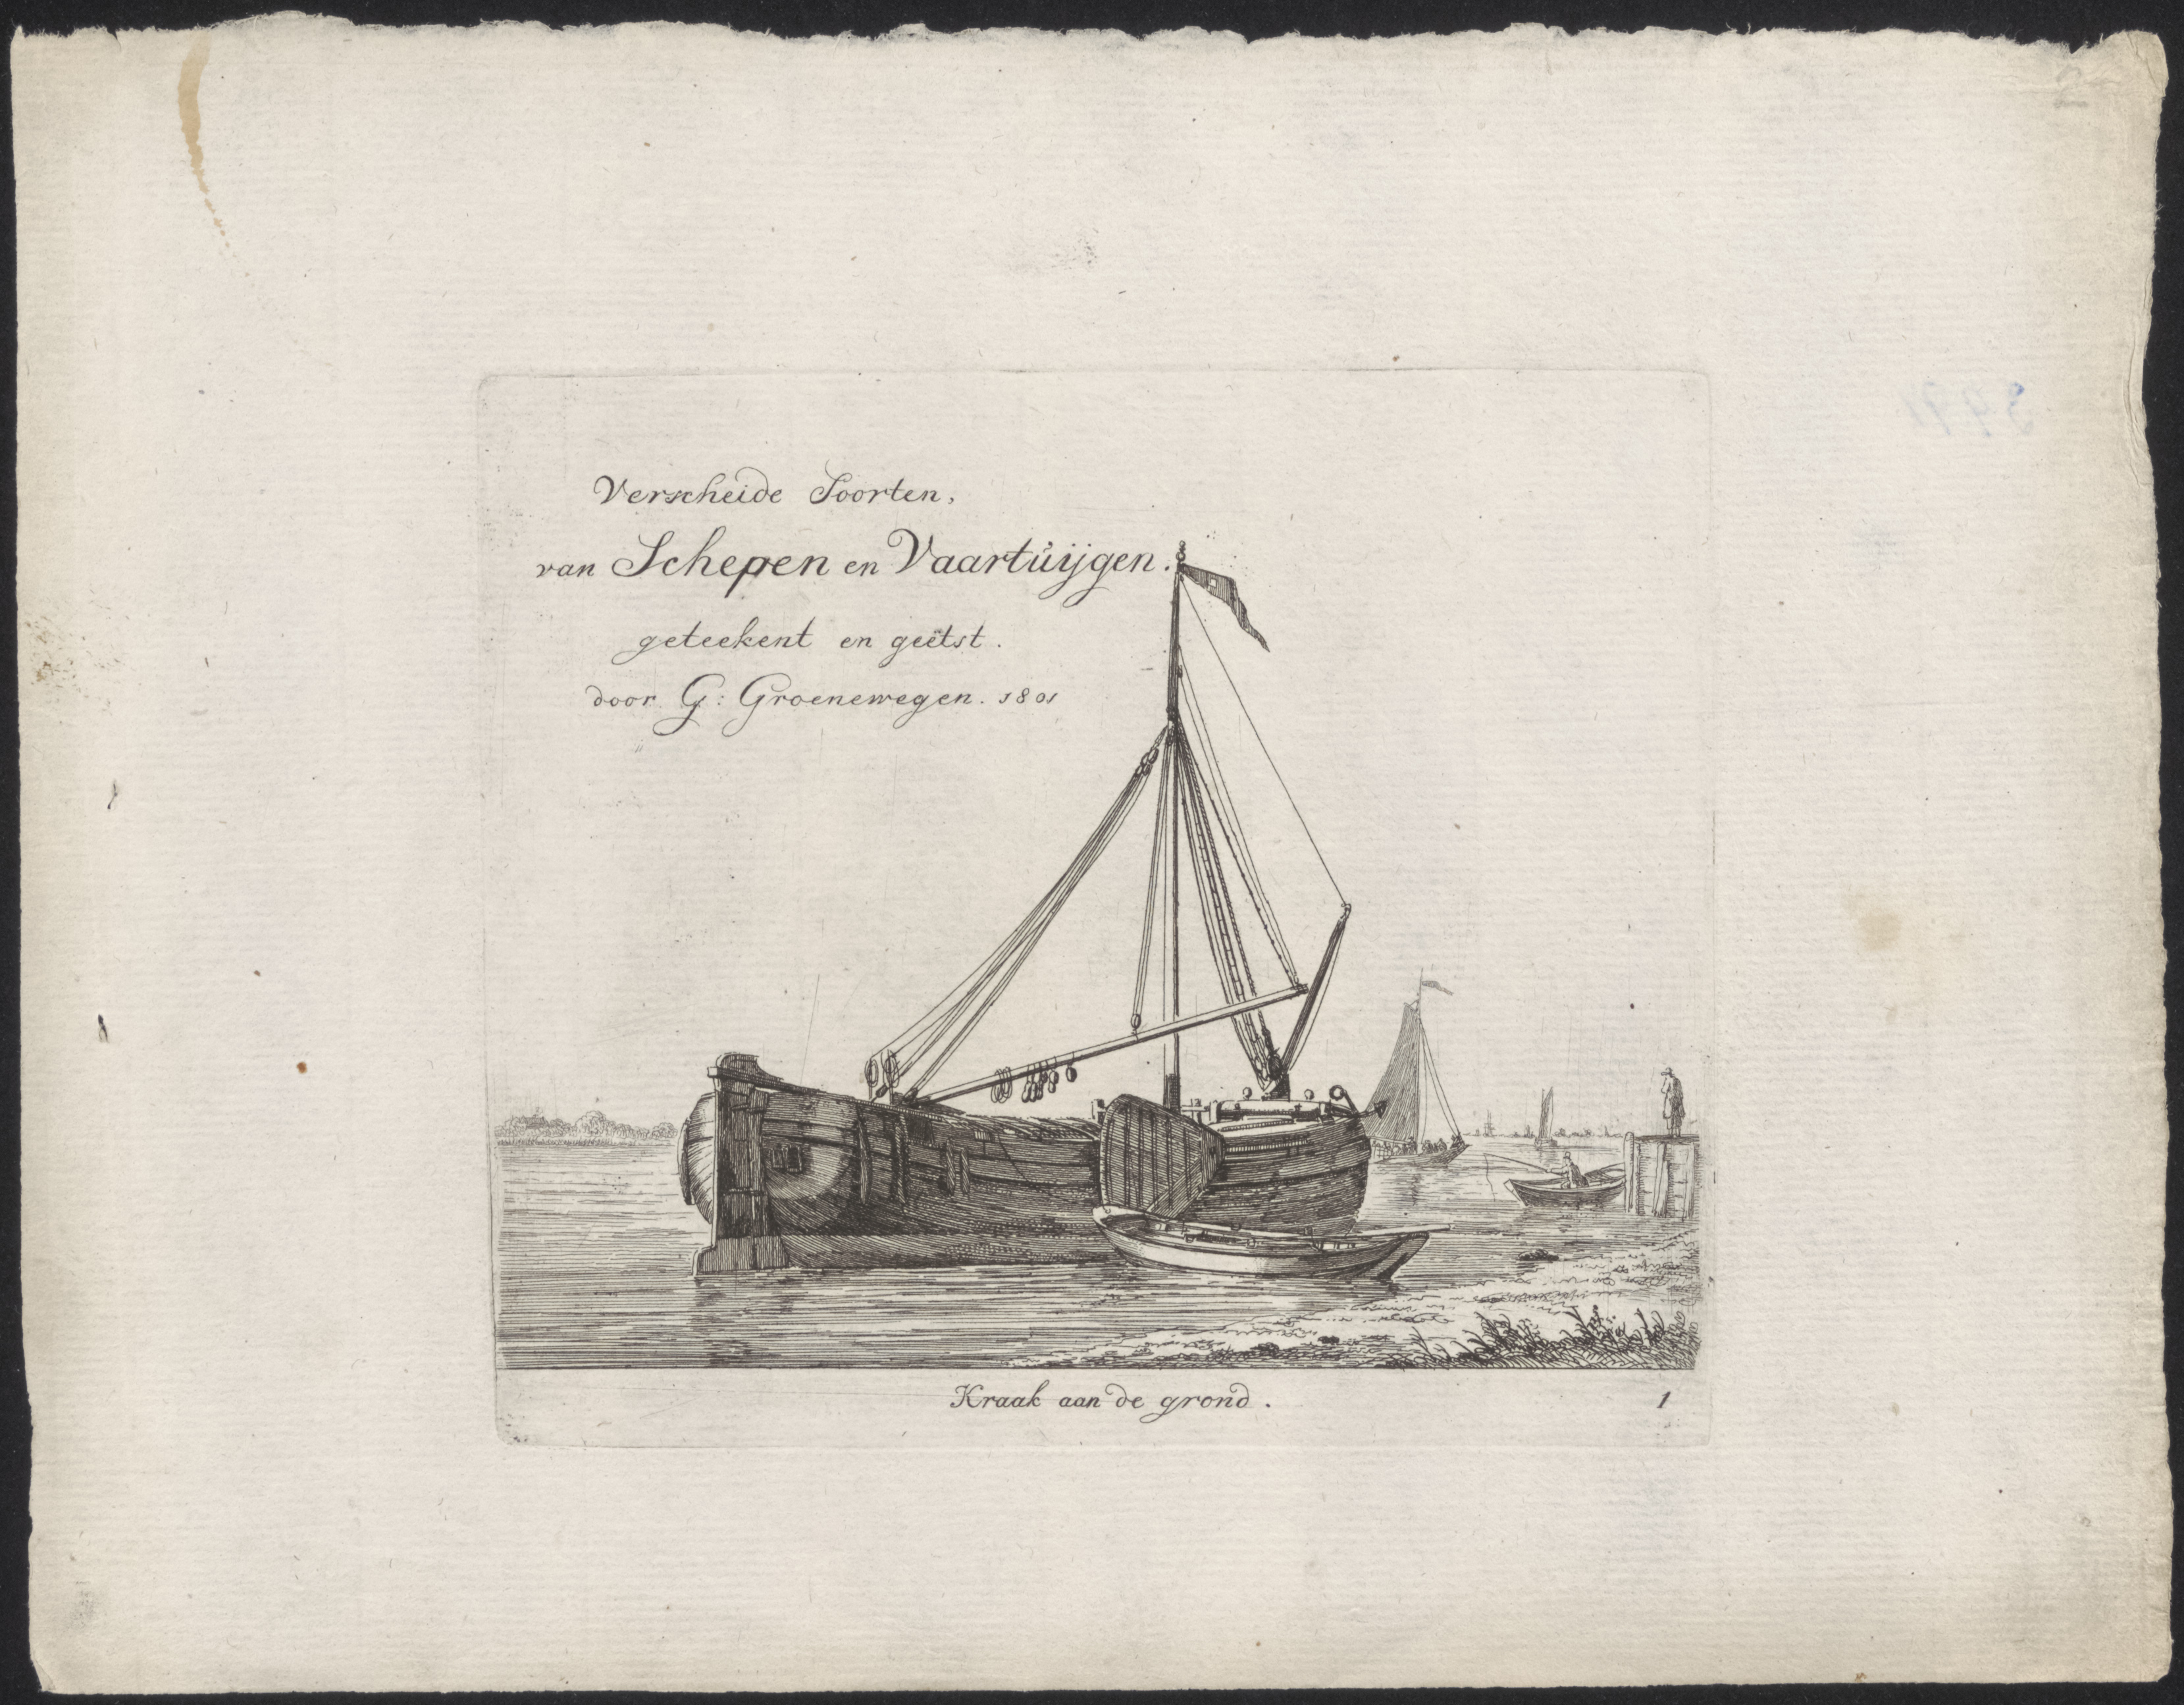 Verscheide Soorten,
van Schepen en Vaartuijgen.
geteekent en geëtst.
door G: Groenewegen. 1801
Kraak aan de grond.
1